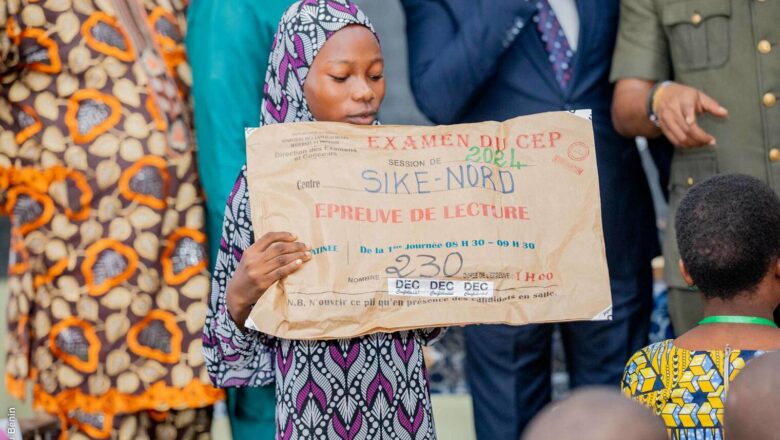 EXAMEN DU CEP
Direction des Examens
et Concours
SESSION DE 2024
Centre SIKE-NORD
EPREUVE DE LECTURE
MATINEE De la 1ère Journée 08 H 30 - 09 H 30
NOMBRE 230 DUREE DE L'EPREUVE : 1H00
DEC DEC DEC
Confidentiel Confidentiel Confidentiel
N.B. N'ouvrir ce pli qu'en présence des candidats en salle.